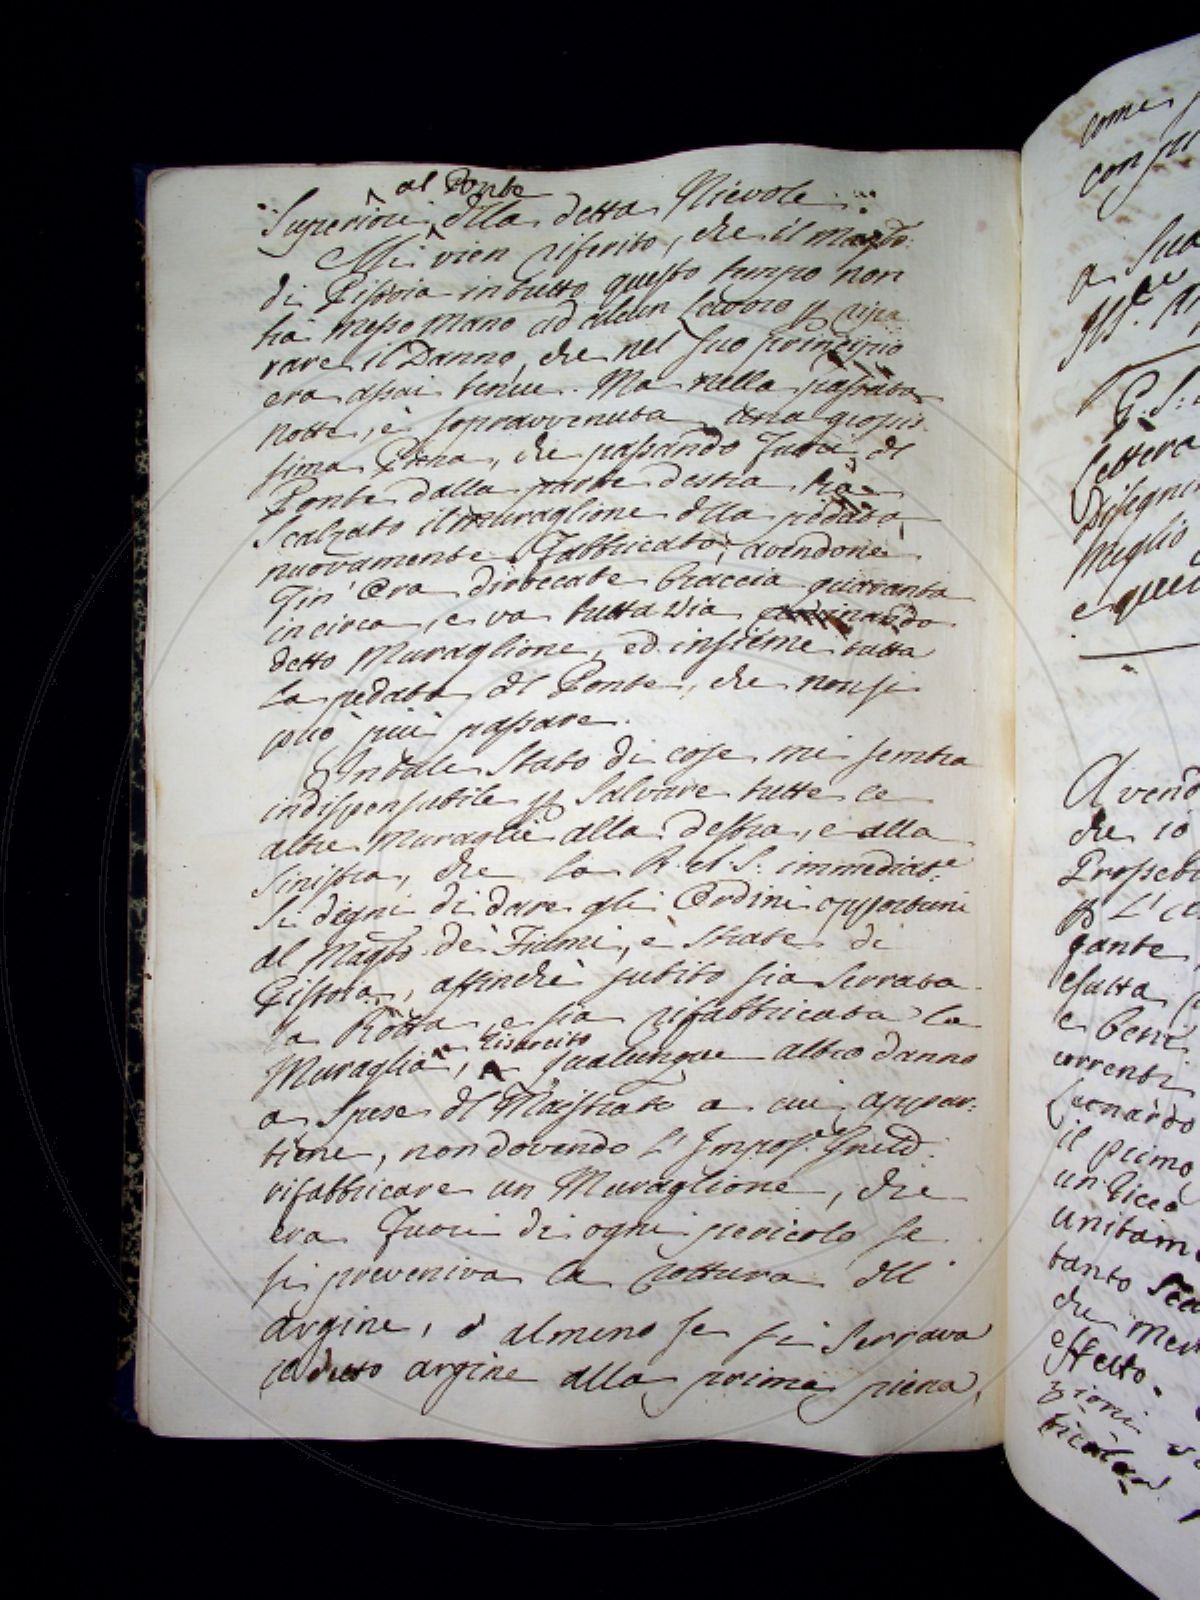 al Ponte
Superiore della detta Nievole.
Mi vien riferito, che il Magto:
di Pistoia in tutto questo tempo non
ha messo mano ad alcun lavoro p ripa
rare il Danno, che nel suo principio
era assai tenue. Ma nella passata
notte, è sopravvenuta una grossis:
sima Piena, che passando fuori del
Ponte dalla parte destra hà
Scalzato il muraglione della pedata
nuovamente fabbricato, avendone
fin' Ora diroccate braccia quaranta
incirca, e va tuttavia rovinando
detto Muraglione, ed insieme tutta
la pedata del Ponte, che non si
può più passare.
In tale Stato di cose mi sembra
indispensabile p Salvare tutte le
altre Muraglie alla destra, e alla
Sinistra, che la R. A. S. immediate
Si degni di dare gli Ordini opportuni
al Magto. de' Fiumi, e Strade di
Pistoia, affinchè subito sia Serrata
la Rotta, e sia rifabbricata la
Muraglia, e risarcito qualunque altro danno
a Spese del Magistrato a cui appar:
tiene, non dovendo l' Impose.
rifabbricare un Muraglione, che
era fuori di ogni pericolo se
si preveniva la rottura dell'
argine, ò almeno se si Serrava
detto argine alla prima piena,
come
con
a Sua
G. S.
Lettera
Disegni
meglio
e que
Avend
che io
p L'
gante
esatta
e beni
correnti
Leonardo
il primo
un
unitam
tanto
che
effetto.
zioni